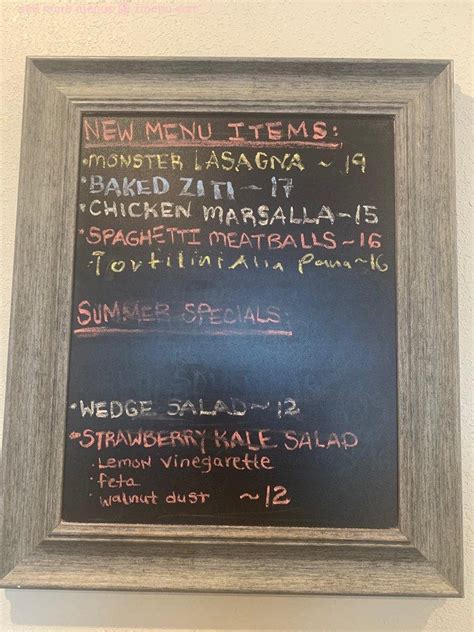 see more menus @ zmenu.com
NEW MENU ITEMS:
• MONSTER LASAGNA ~ 19
• BAKED ZITI ~ 17
• CHICKEN MARSALLA ~ 15
• SPAGHETTI MEATBALLS ~ 16
Tortilini Alla Pana ~ 16
SUMMER SPECIALS:
• WEDGE SALAD ~ 12
• STRAWBERRY KALE SALAD
• Lemon vinegarette
• feta
• walnut dust ~ 12